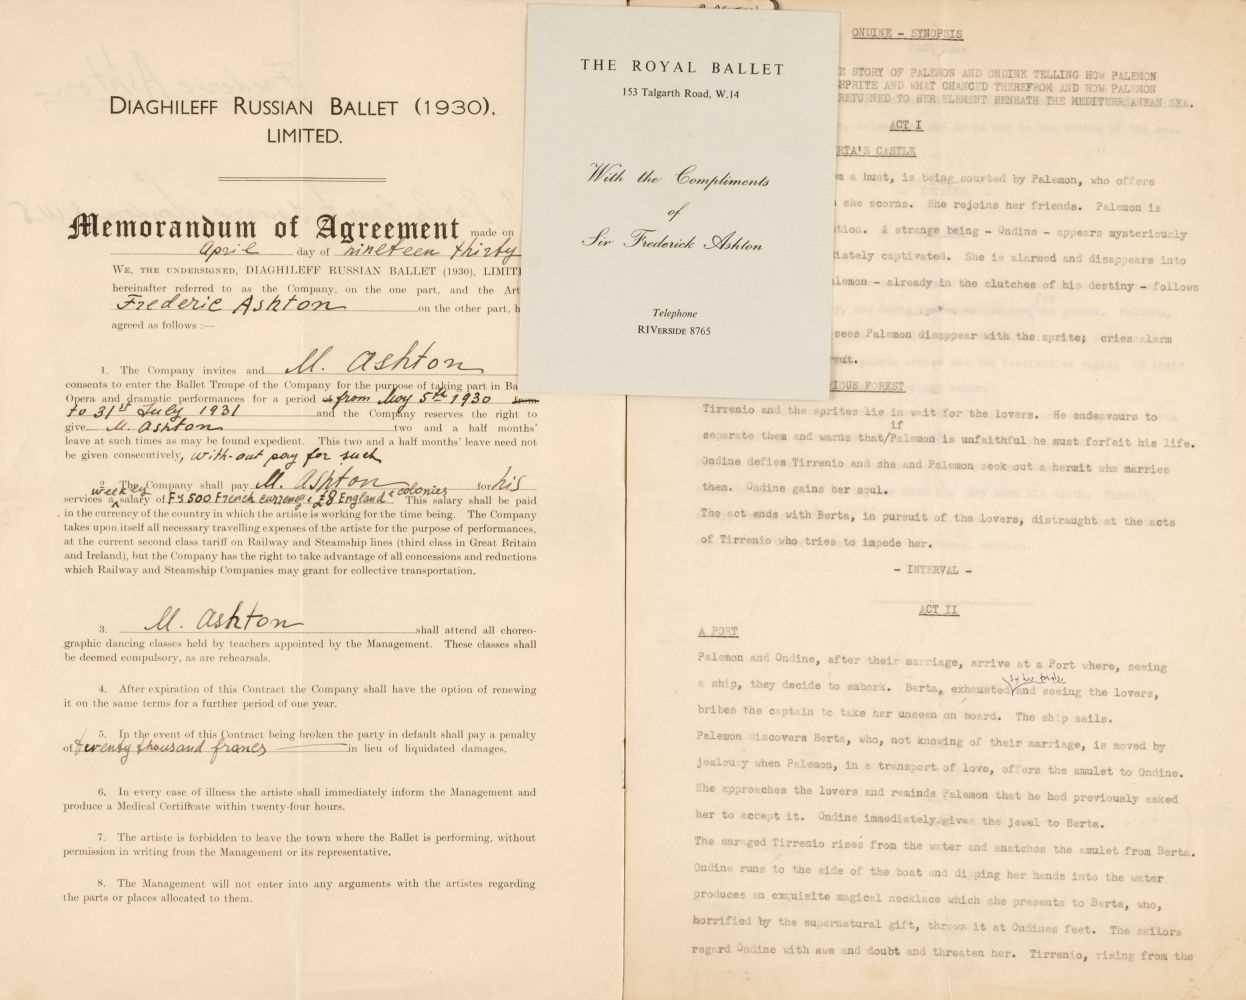 DIAGHILEFF RUSSIAN BALLET (1930),
LIMITED.
Memorandum of Agreement made on
April day of nineteen thirty
WE, THE UNDERSIGNED, DIAGHILEFF RUSSIAN BALLET (1930), LIMIT
hereinafter referred to as the Company, on the one part, and the Art
Frederic Ashton on the other part, h
agreed as follows :—
1. The Company invites and M. Ashton
consents to enter the Ballet Troupe of the Company for the purpose of taking part in Ba
Opera and dramatic performances for a period from May 5th 1930
to 31st July 1931 and the Company reserves the right to
give M. Ashton two and a half months'
leave at such times as may be found expedient. This two and a half months' leave need not
be given consecutively, with-out pay for such
2. The Company shall pay M. Ashton for his
services a weekly salary of Fs 500 French currency, £8 England & colonies This salary shall be paid
in the currency of the country in which the artiste is working for the time being. The Company
takes upon itself all necessary travelling expenses of the artiste for the purpose of performances,
at the current second class tariff on Railway and Steamship lines (third class in Great Britain
and Ireland), but the Company has the right to take advantage of all concessions and reductions
which Railway and Steamship Companies may grant for collective transportation.
3. M. Ashton shall attend all choreo-
graphic dancing classes held by teachers appointed by the Management. These classes shall
be deemed compulsory, as are rehearsals.
4. After expiration of this Contract the Company shall have the option of renewing
it on the same terms for a further period of one year.
5. In the event of this Contract being broken the party in default shall pay a penalty
of twenty thousand francs in lieu of liquidated damages.
6. In every case of illness the artiste shall immediately inform the Management and
produce a Medical Certificate within twenty-four hours.
7. The artiste is forbidden to leave the town where the Ballet is performing, without
permission in writing from the Management or its representative.
8. The Management will not enter into any arguments with the artistes regarding
the parts or places allocated to them.
THE ROYAL BALLET
153 Talgarth Road, W.14
With the Compliments
of
Sir Frederick Ashton
Telephone
RIVERSIDE 8765
ONDINE - SYNOPSIS
E STORY OF PALEMON AND ONDINE TELLING HOW PALEMON
SPRITE AND WHAT CHANCED THEREFROM AND HOW PALEMON
RETURNED TO HER ELEMENT BENEATH THE MEDITERRANEAN SEA.
ACT I
RTA'S CASTLE
m a hunt, is being courted by Palemon, who offers
she scorns. She rejoins her friends. Palemon is
tion. A strange being - Ondine - appears mysteriously
iately captivated. She is alarmed and disappears into
lemon - already in the clutches of his destiny - follows
sees Palemon disappear with the sprite; cries alarm
uit.
IOUS FOREST
Tirrenio and the sprites lie in wait for the lovers. He endeavours to
separate them and warns that/if Palemon is unfaithful he must forfeit his life.
Ondine defies Tirrenio and she and Palemon seek out a hermit who marries
them. Ondine gains her soul.
The act ends with Berta, in pursuit of the lovers, distraught at the acts
of Tirrenio who tries to impede her.
- INTERVAL -
ACT II
A PORT
Palemon and Ondine, after their marriage, arrive at a Port where, seeing
a ship, they decide to embark. Berta, exhausted and seeing the lovers,
bribes the captain to take her unseen on board. The ship sails.
Palemon discovers Berta, who, not knowing of their marriage, is moved by
jealousy when Palemon, in a transport of love, offers the amulet to Ondine.
She approaches the lovers and reminds Palemon that he had previously asked
her to accept it. Ondine immediately gives the jewel to Berta.
The enraged Tirrenio rises from the water and snatches the amulet from Berta.
Ondine runs to the side of the boat and dipping her hands into the water
produces an exquisite magical necklace which she presents to Berta, who,
horrified by the supernatural gift, throws it at Ondines feet. The sailors
regard Ondine with awe and doubt and threaten her. Tirrenio, rising from the